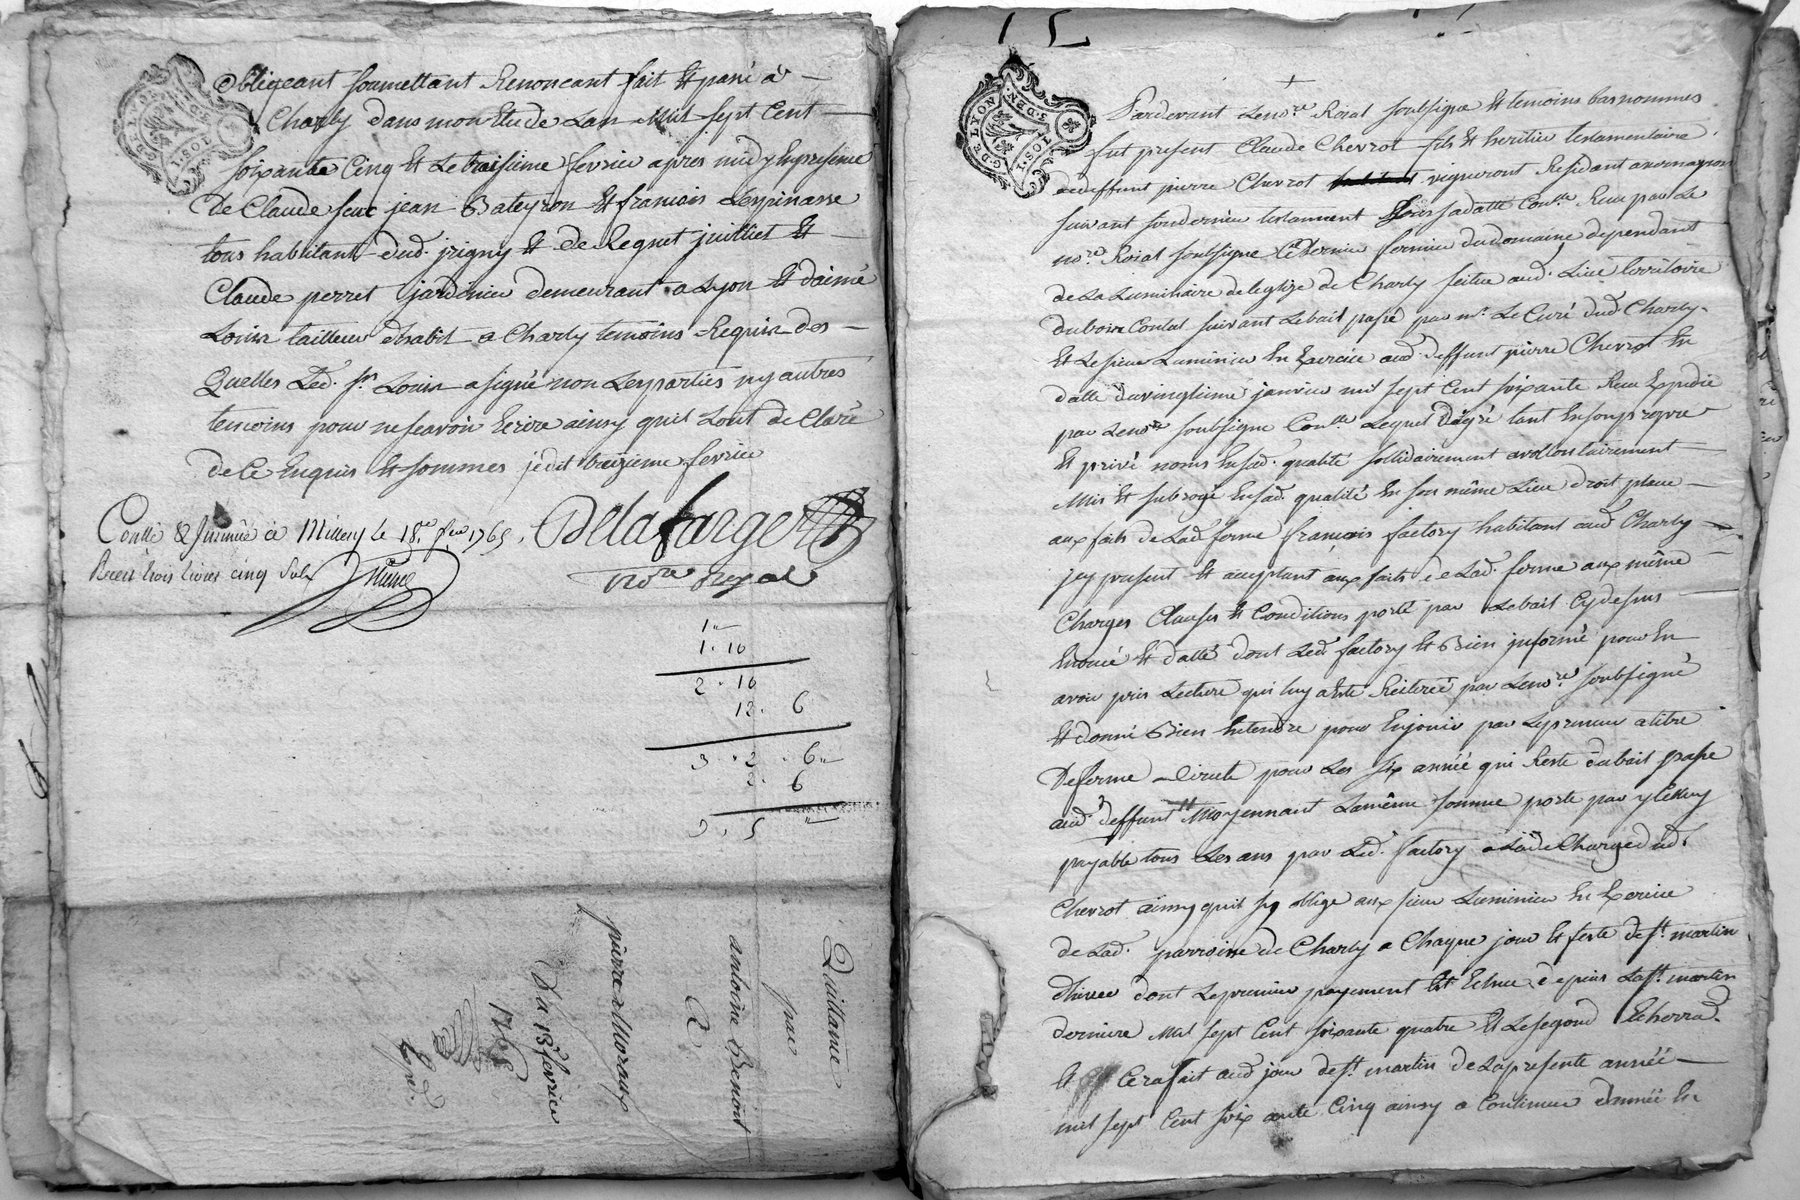 Obligeant soumettant Renoncant fait Et passé a
Charly dans mon Etude Lan Mil sept Cent
soixante Cinq Et Le traisieme fevrier apres midy En presence
de Claude jean Bateyron Et francois Lespinasse
tous habitant dud. jrigny Et de juilliet Et
Claude perret jardinier demeurant a Lyon Et d'aimé
Louis tailleur d'habit a Charly temoins Requis des
Quelles Led. sr. Louis a signé non Les parties ny autres
temoins pour ne scavoir Ecrire ainsy quil Lont de Claré
de Ce Enquis Et sommes je dit traizieme fevrier
Contlé & Jnsinué à Millery le 18.e fer 1765.
Delafarge
Receu trois livres cinq sols
nore royal
1"
1. 10
2. 10
12. 6
3. 2. 6"
2. 6
3. 5 "
Quittance
par
antoine Benoist
a
pierre Moraux
Du 13e fevrier
1765
Exp.
G. DE LYON
G. DE LYON
Pardevant Le nore Roial soubsigné Et temoins bas nommes
fut present Claude Chevrot fils Et heritier testamentaire
de deffunt pierre Chevrot vigneront Residant a vernaison
suivant son dernier testament sous sa datte Conlle Reçu par Le
nore Roial soubsigné Ce dernier fermier du domaine dependant
de La Luminiaire de leglize de Charly scitue aud. Lieu territoire
du boix Contal suivant Le bail passé par mr. Le Curé dud Charly
Et Le sieur Luminier En Exercice aud. deffunt pierre Chevrot En
datte du vingtieme janvier mil sept Cent soixante Receu Expedie
par Le nore soubsigné Conlle Lequel Degré tant En son propre
Et privé noms En sad. qualité sollidairement a vollontairement
Mis Et subrogé En sad. qualité En son même Lieu droit place
aux faits de Lad ferme francois factory habitant aud Charly
jcy present Et acceptant aux faits de Lad. ferme aux même
Charges Clauses Et Conditions porté par Le bail Cy dessus
Enoncé Et datté dont Led factory Et Bien jnformé pour En
avoir pris Lecture qui luy a Eté Reiterée par Le nore soubsigné
Et donné Bien Entendre pour En jouir par Le preneur a titre
De ferme pour Les six année qui Reste du bail passé
aud deffunt Moyennant La même somme porté par y Celluy
payable tous Les ans par Led. factory a La de Charge dud
Chevrot ainsy quil sy oblige aux sieur Luminier En Exercice
de Lad. parroisse de Charly a Chaque jour Et feste de st. martin
dhiver dont Le premier payement Est Echue depuis La st. martin
derniere Mil sept Cent soixante quatre Et Le segond Echerra
Et Cera fait aud jour de st. martin de La presente année
mil sept Cent soix ante Cinq ainsy a Continuer d'année En